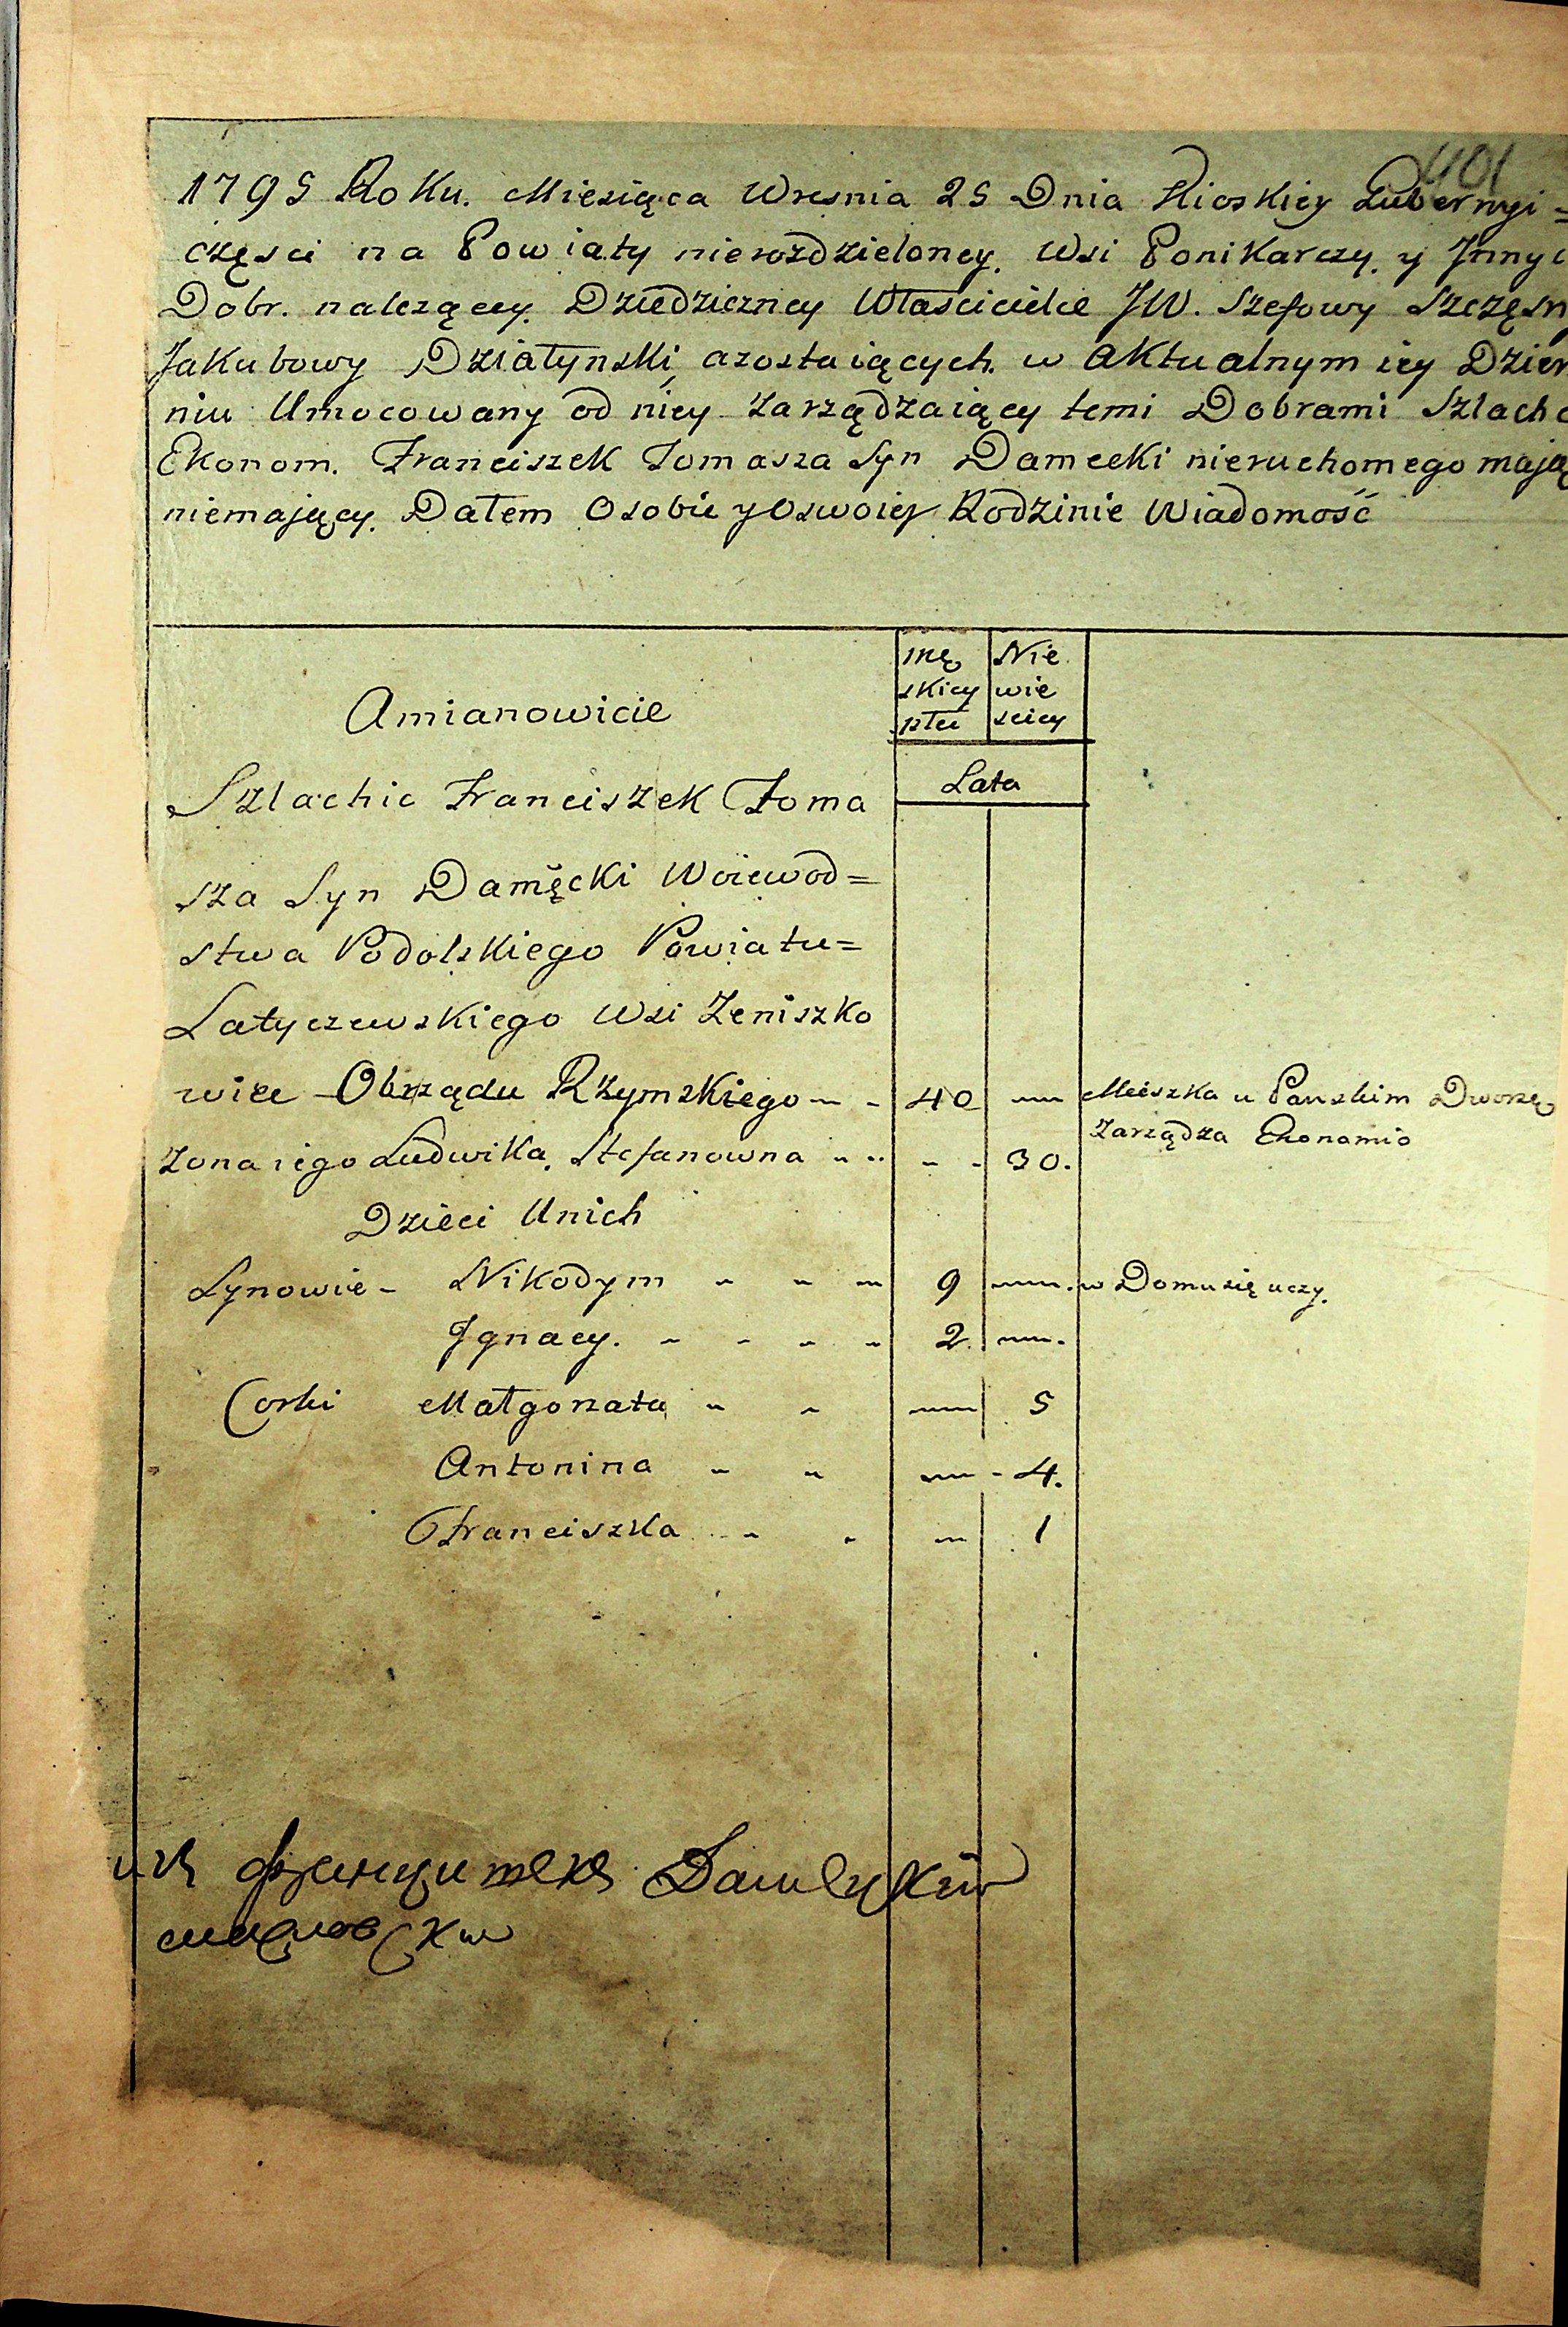 401
1795 Roku. Miesiąca Wresnia 25 Dnia Kioskiey Gubernyi =
częsci na Powiaty nierozdzieloney. Wsi Ponikarczy. y Jnnyc
Dobr. nalezącey. Dziedziczney Własciicielce JW. Szefowy Szczęsn
Jakubowy Dziatynski, azostaiących. w aktualnym iey Dzier
niu Umocowany od niey zarządzaiący temi Dobrami Szlach
Ekonom. Franciszek Tomasza Syn Damecki nieruchomego mają
niemający. Dałem Osobie y Oswoiey Rodzinie Wiadomość
mę Nie
skiey wie
płci sciey
Amianowicie
Lata
Szlachic Franciszek Toma
sza Syn Damęcki Woiewod=
stwa Podolskiego Powiatu=
Latyczewskiego Wsi Zeniszko
wiec Obrządu Rzymskiego 40 Mieszka u Panskim Dworze
Zarządza Ekonomio
Zona iego Ludwika. Stefanowna 30.
Dzieci Unich
Synowie - Nikodym 9 w Domu się uczy.
Jgnacy. 2.
Corki Małgorzata 5
Antonina 4.
Franciszka 1